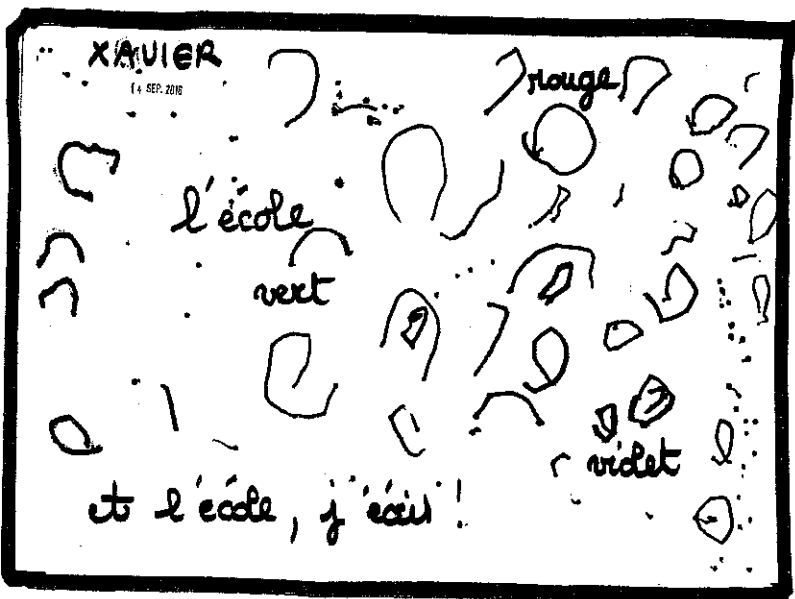 XAVIER
14 SEP. 2016
rouge
l'école
vert
violet
et l'école, j'écris !